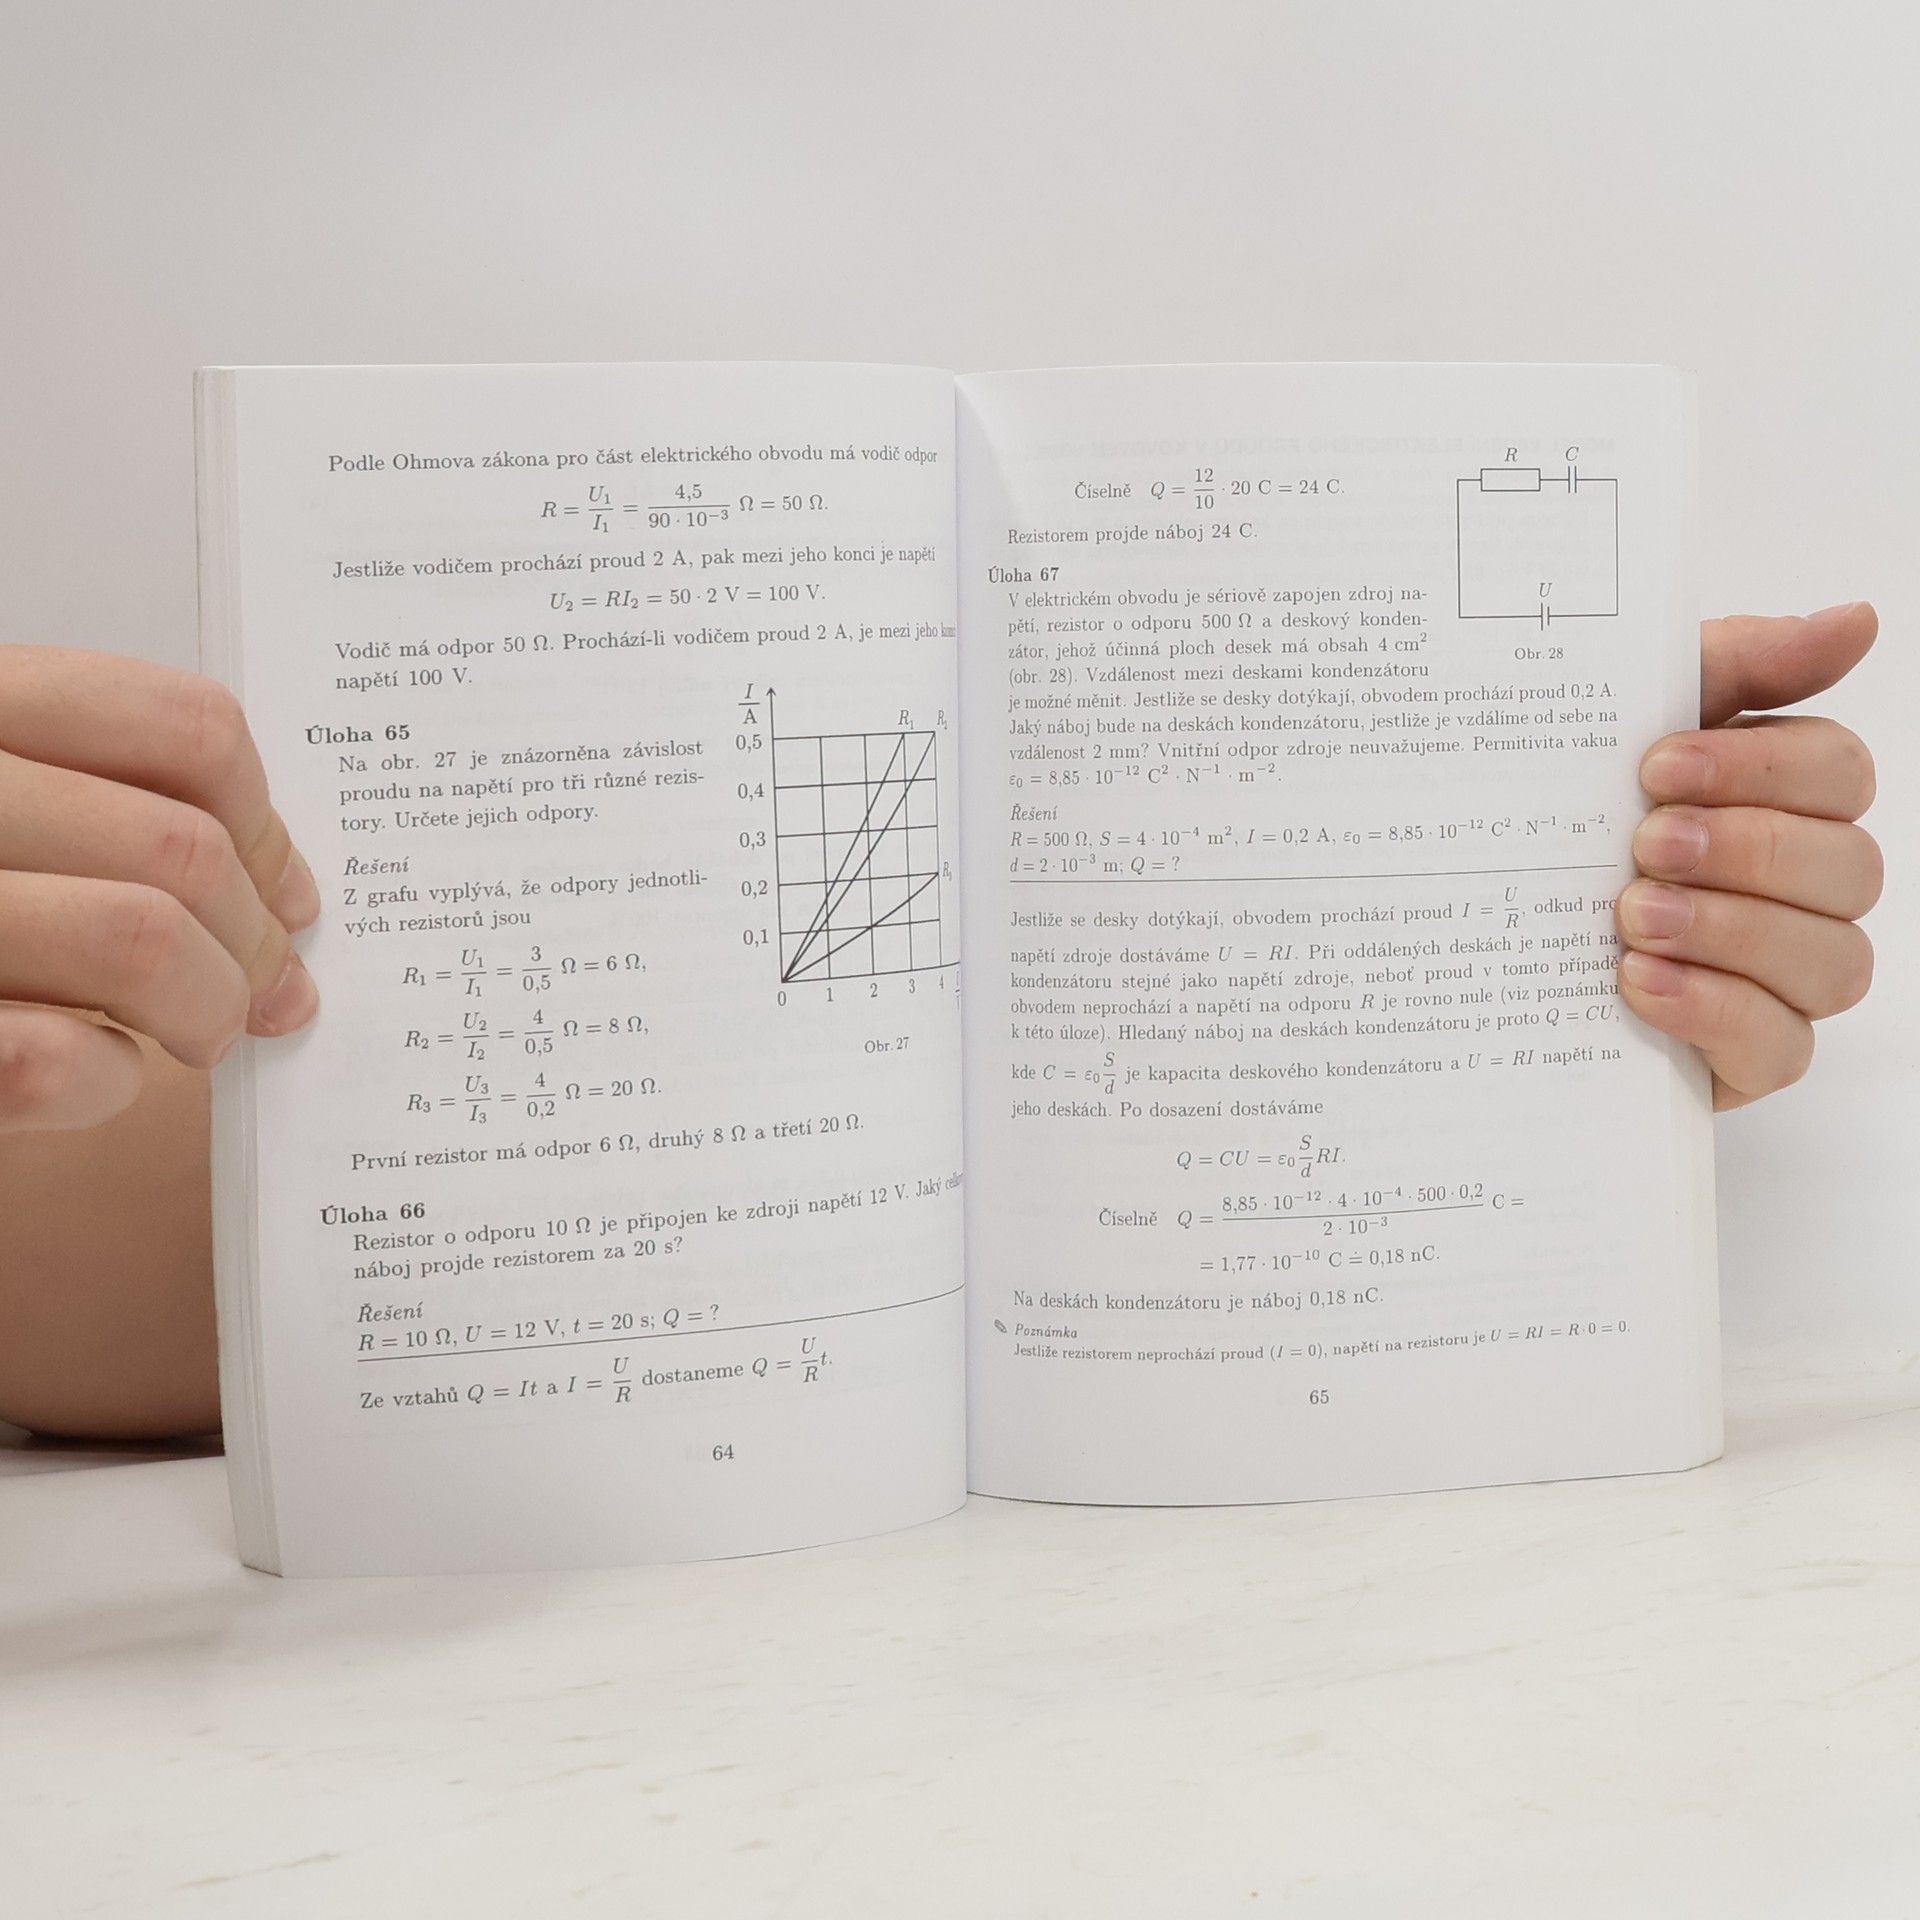 Podle Ohmova zákona pro část elektrického obvodu má vodič odpor
R = U₁/I₁ = 4,5/(90 · 10⁻³) Ω = 50 Ω.
Jestliže vodičem prochází proud 2 A, pak mezi jeho konci je napětí
U₂ = RI₂ = 50 · 2 V = 100 V.
Vodič má odpor 50 Ω. Prochází-li vodičem proud 2 A, je mezi jeho
napětí 100 V.
Úloha 65
Na obr. 27 je znázorněna závislost
proudu na napětí pro tři různé rezis-
tory. Určete jejich odpory.
Řešení
Z grafu vyplývá, že odpory jednotli-
vých rezistorů jsou
R₁ = U₁/I₁ = 3/0,5 Ω = 6 Ω,
R₂ = U₂/I₂ = 4/0,5 Ω = 8 Ω,
R₃ = U₃/I₃ = 4/0,2 Ω = 20 Ω.
I/A
R₁ R₂
0,5
0,4
0,3
0,2
R₃
0,1
0 1 2 3 4
Obr. 27
První rezistor má odpor 6 Ω, druhý 8 Ω a třetí 20 Ω.
Úloha 66
Rezistor o odporu 10 Ω je připojen ke zdroji napětí 12 V. Jaký
náboj projde rezistorem za 20 s?
Řešení
R = 10 Ω, U = 12 V, t = 20 s; Q = ?
Ze vztahů Q = It a I = U/R dostaneme Q = U/R t.
64
Číselně Q = 12/10 · 20 C = 24 C.
Rezistorem projde náboj 24 C.
R C
U
Obr. 28
Úloha 67
V elektrickém obvodu je sériově zapojen zdroj na-
pětí, rezistor o odporu 500 Ω a deskový konden-
zátor, jehož účinná ploch desek má obsah 4 cm²
(obr. 28). Vzdálenost mezi deskami kondenzátoru
je možné měnit. Jestliže se desky dotýkají, obvodem prochází proud 0,2 A.
Jaký náboj bude na deskách kondenzátoru, jestliže je vzdálíme od sebe na
vzdálenost 2 mm? Vnitřní odpor zdroje neuvažujeme. Permitivita vakua
ε₀ = 8,85 · 10⁻¹² C² · N⁻¹ · m⁻².
Řešení
R = 500 Ω, S = 4 · 10⁻⁴ m², I = 0,2 A, ε₀ = 8,85 · 10⁻¹² C² · N⁻¹ · m⁻²,
d = 2 · 10⁻³ m; Q = ?
Jestliže se desky dotýkají, obvodem prochází proud I = U/R, odkud pro
napětí zdroje dostáváme U = RI. Při oddálených deskách je napětí na
kondenzátoru stejné jako napětí zdroje, neboť proud v tomto případě
obvodem neprochází a napětí na odporu R je rovno nule (viz poznámku
k této úloze). Hledaný náboj na deskách kondenzátoru je proto Q = CU,
kde C = ε₀ S/d je kapacita deskového kondenzátoru a U = RI napětí na
jeho deskách. Po dosazení dostáváme
Q = CU = ε₀ S/d RI.
Číselně Q = (8,85 · 10⁻¹² · 4 · 10⁻⁴ · 500 · 0,2)/(2 · 10⁻³) C =
= 1,77 · 10⁻¹⁰ C ≐ 0,18 nC.
Na deskách kondenzátoru je náboj 0,18 nC.
✎ Poznámka
Jestliže rezistorem neprochází proud (I = 0), napětí na rezistoru je U = RI = R·0 = 0.
65